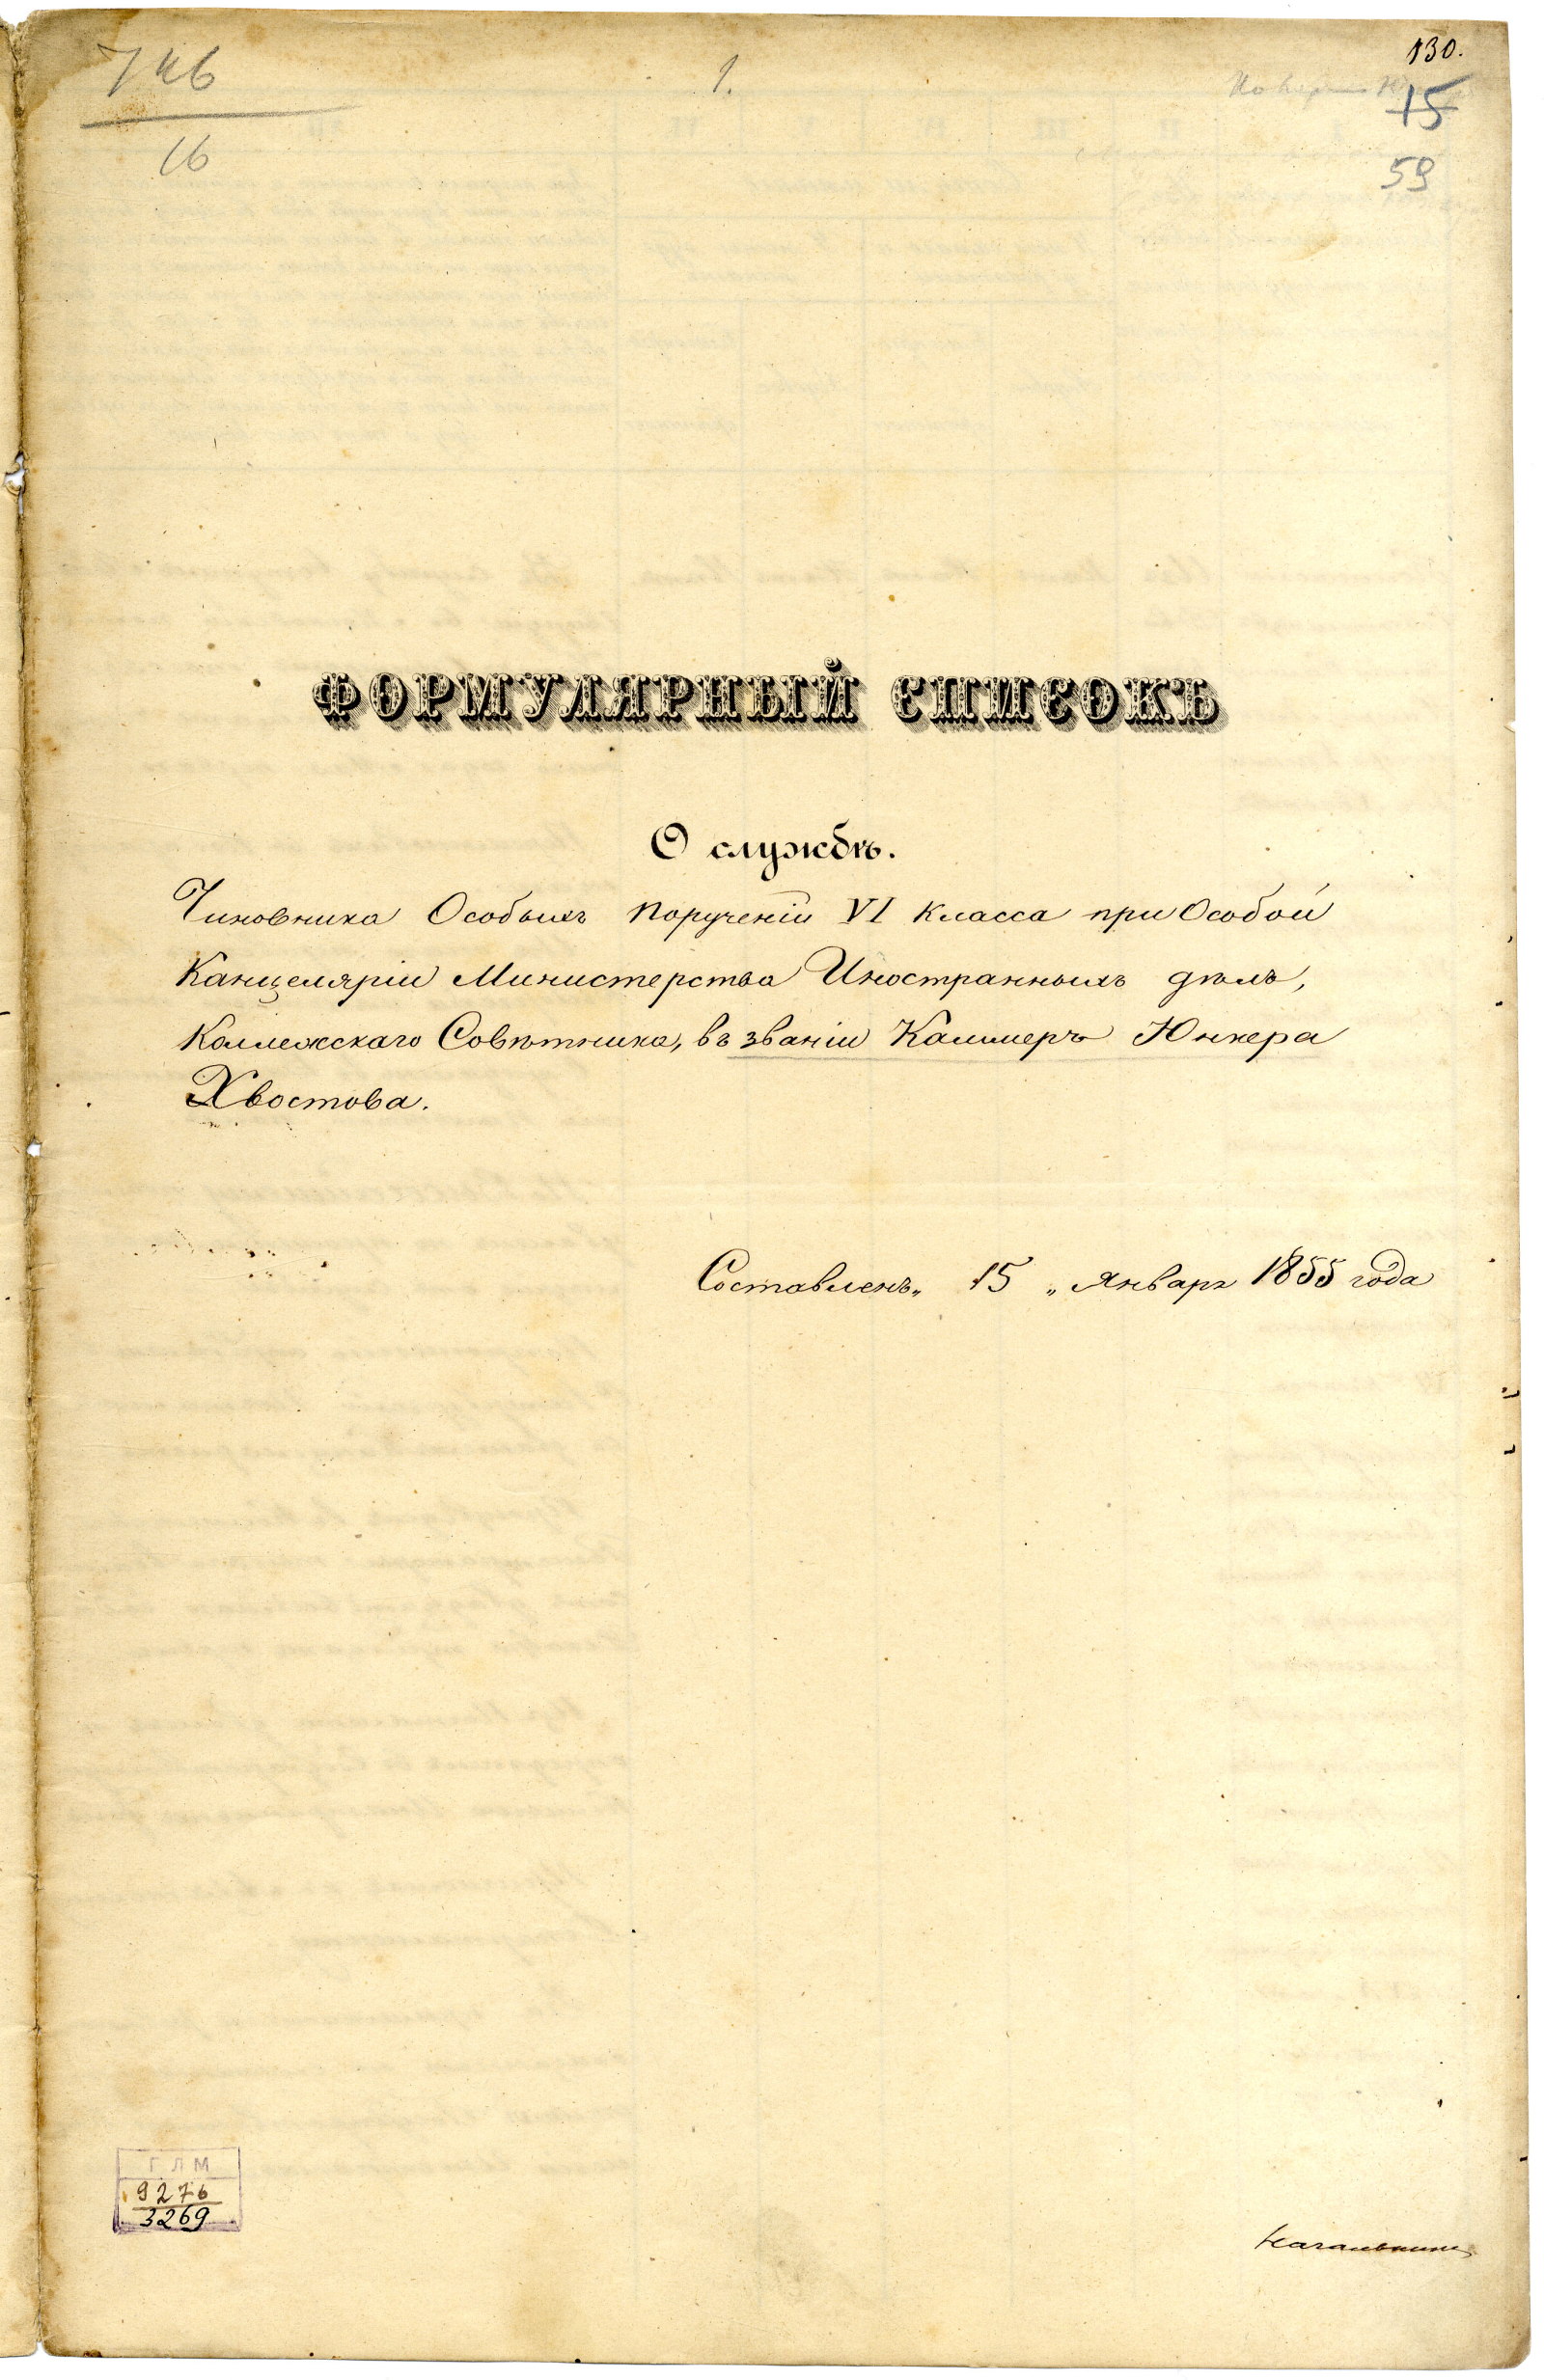 130.
746
1.
15
16
59
ФОРМУЛЯРНЫЙ СПИСОКЪ
О службѣ.
Чиновника Особыхъ порученій VI класса при Особой
Канцеляріи Министерства Иностранныхъ дѣлъ,
Коллежскаго Совѣтника, въ званіи Каммеръ Юнкера
Хвостова.
Составленъ „ 15 „ Января 1855 года
ГЛМ
9276
3269
Начальникъ